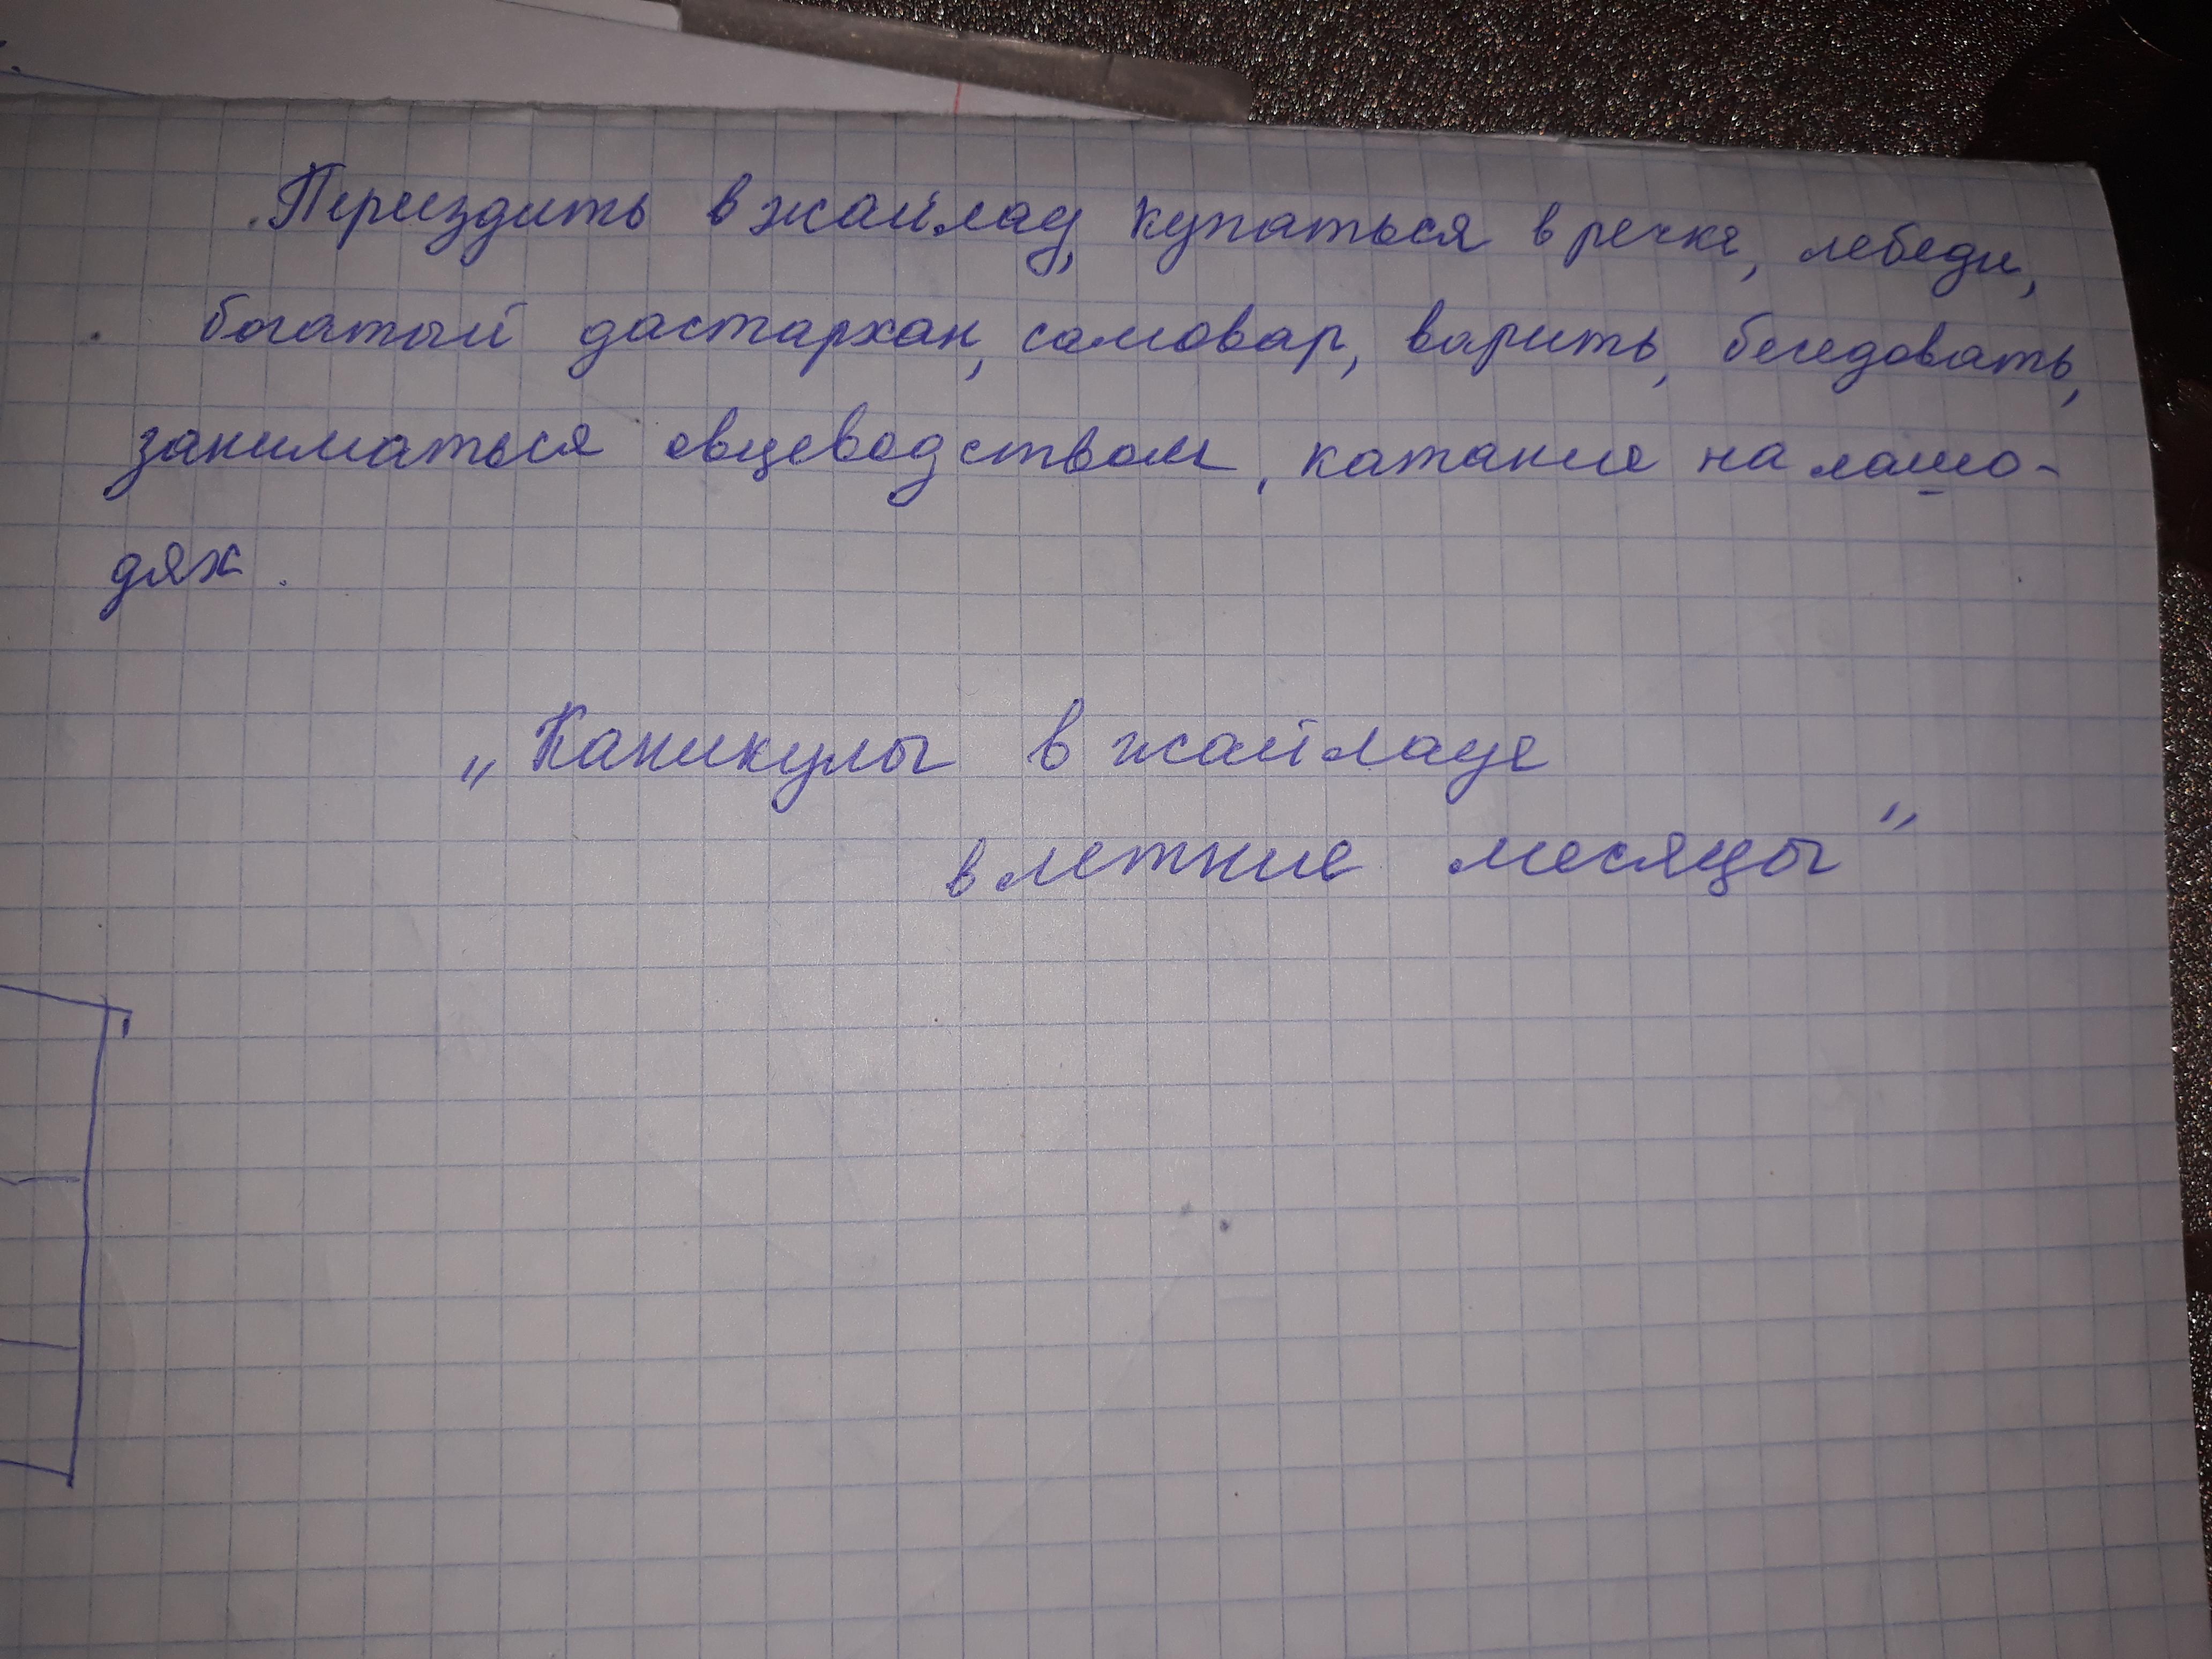 Переездить в жайлау, купаться в речке, лебеди,
богатый дастархан, самовар, варить, беседовать,
заниматься овцеводством, катание на лошо-
дях.
„Каникулы в жайлауе
в летние месяцы"